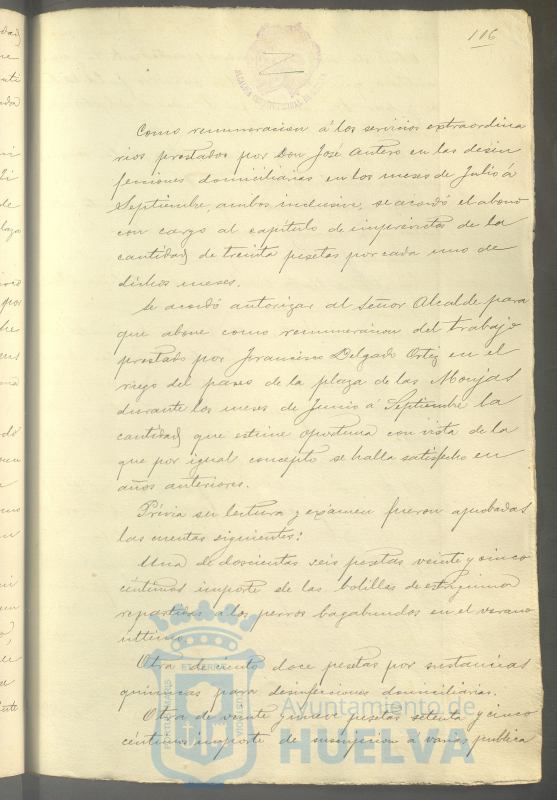 116
Como remuneracion á los servicios extraordina
rios prestados por Don José Antero en las desin
fecciones domiciliarias en los meses de Julio á
Septiembre, ambos inclusive, se acordó el abono
con cargo al capítulo de imprevistos de la
cantidad de treinta pesetas por cada uno de
dichos meses.
Se acordó autorizar al Señor Alcalde para
que abone como remuneracion del trabajo
prestado por Francisco Delgado Ortiz en el
riego del paseo de la plaza de las Monjas
durante los meses de Junio á Septiembre la
cantidad que estime oportuna con vista de la
que por igual concepto se halla satisfecho en
años anteriores.
Prévia su lectura y exámen fueron aprobadas
las cuentas siguientes:
Una de doscientas seis pesetas veinte y cinco
céntimos importe de las bolillas de estrignina
repartidas á los perros bagabundos en el verano
último.
Otra de ciento doce pesetas por sustancias
químicas para desinfecciones domiciliarias.
Otra de veinte y nueve pesetas setenta y cinco
céntimos importe de suscripcion á varias publica
Ayuntamiento de
HUELVA